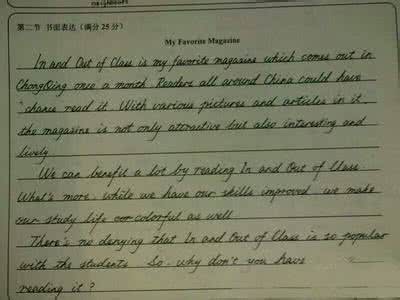 neighbours
第二节 书面表达（满分25分）
My Favorite Magazine
In and Out of Class is my favorite magazine which comes out in
ChongQing once a month. Readers all around China could have
chance read it. With various pictures and articles in it,
the magazine is not only attractive but also interesting and
lively
We can benefit a lot by reading In and Out of Class
What's more, while we have our skills improved, we make
our study life colorful as well
There's no denying that In and Out of Class is so popular
with the students. So, why don't you have
reading it?